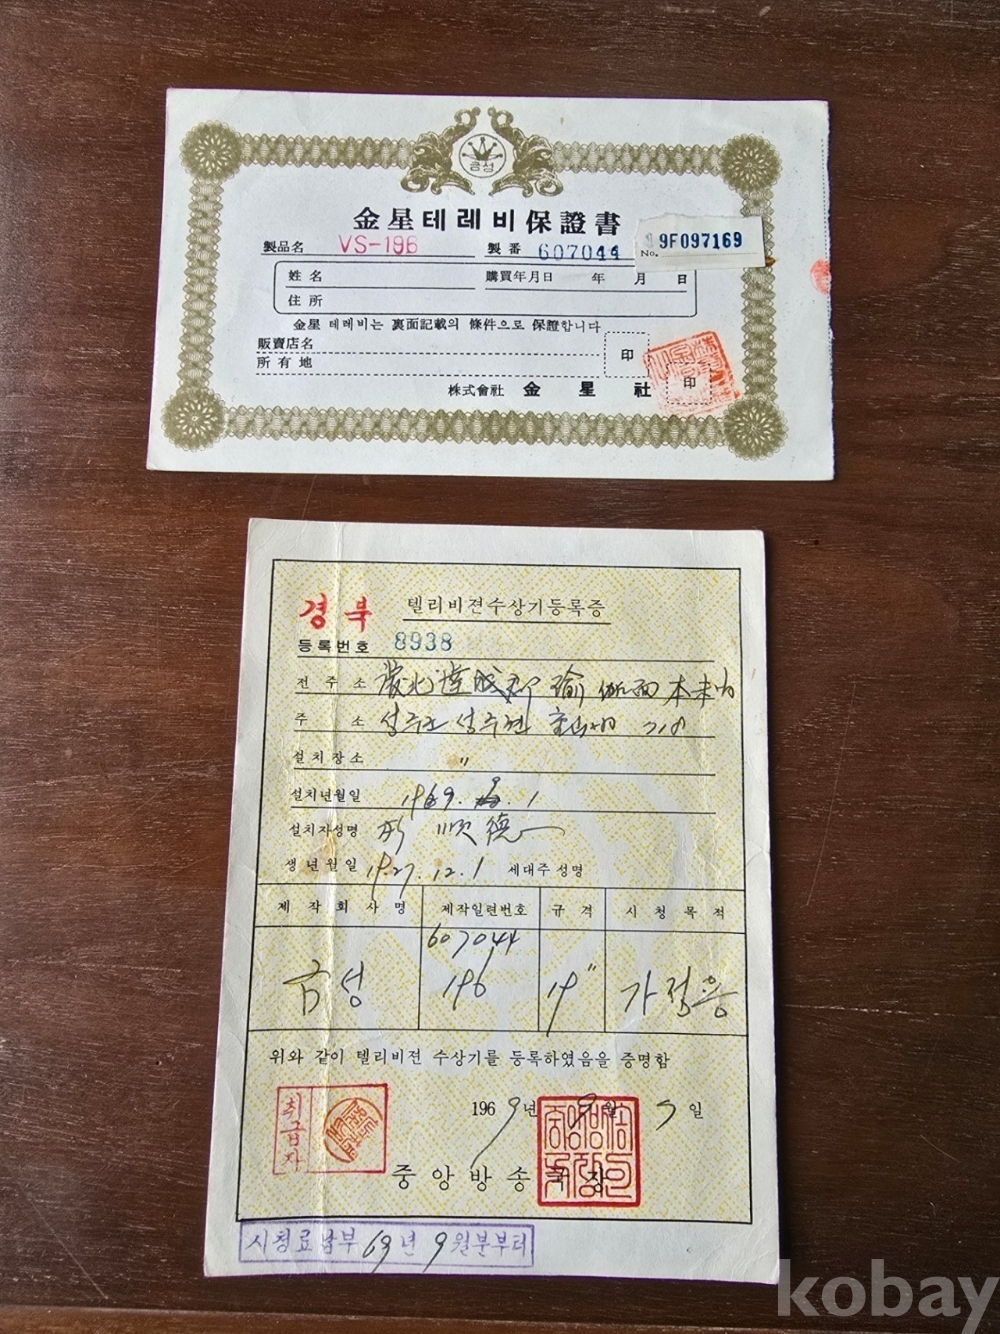 금성
金星테레비保證書
製品名 VS-196 製番 607044 No. 9F097169
姓名 購買年月日 年 月 日
住所
金星 테레비는 裏面記載의 條件으로 保證합니다
販賣店名
所有地 印
株式會社 金星社 印
경북 텔리비젼수상기등록증
등록번호 8938
전주소
주소 성주군 성주면 218
설치장소 〃
설치년월일 1969. 9. 1
설치자성명 順德
생년월일 1927. 12. 1 세대주성명
제작회사명 제작일련번호 규격 시청목적
607044
금성 196 19" 가정용
위와 같이 텔리비젼 수상기를 등록하였음을 증명함
취급자
1969년 9월 일
중앙방송국장
시청료납부 69년 9월분부터
kobay